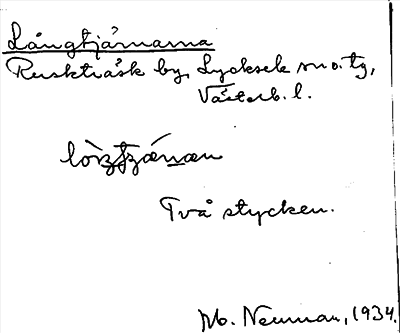 Långtjärnarna
Rusksträsk by, Lycksele sn o. tg,
Västerb. l.
Två stycken.
Neuman, 1934.